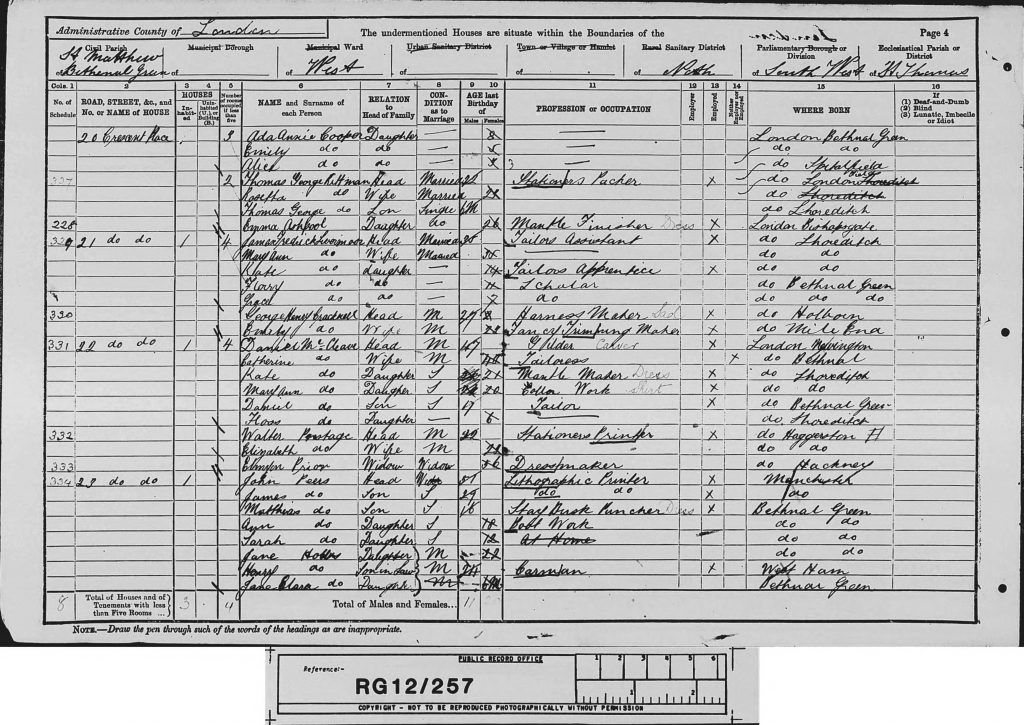 Administrative County of London The undermentioned Houses are situate within the Boundaries of the Page 4
Civil Parish Municipal Borough Municipal Ward Urban Sanitary District Town or Village or Hamlet Rural Sanitary District Parliamentary Borough or Division Ecclesiastical Parish or District
St. Matthew London
of Bethnal Green of of West of of of of South West of St Thomas
Cols. 1 2 3 4 5 6 7 8 9 10 11 12 13 14 15 16
No. of Schedule ROAD, STREET, &c., and No. or NAME of HOUSE HOUSES Inhabited Uninhabited (U.), or Building (B.) Number of rooms occupied if less than five NAME and Surname of each Person RELATION to Head of Family CONDITION as to Marriage AGE last Birthday of Males Females PROFESSION or OCCUPATION Employer Employed Neither Employer nor Employed WHERE BORN If (1) Deaf-and-Dumb (2) Blind (3) Lunatic, Imbecile or Idiot
20 Crescent Place 3 Ada Annie Cooper Daughter — 8 — London Bethnal Green
Emily do do — 5 — do do
Alice do do — 3 — do Spitalfields
2 Thomas George Head Married Stationers Packer X do London Shoreditch
Rosetha do Wife Married do Shoreditch
Thomas George do Son Single 6M do Shoreditch
228 Emma Daughter do 26 Mantle Finisher Dress X London Bishopsgate
21 do do 1 4 James Head Tailors Assistant X do Shoreditch
Mary Ann do Wife Married do do
Kate do daughter — 14 Tailors Apprentice X do do
Flory do do — Scholar do Bethnal Green
Grace do do — 7 do do do do
330 George Henry Cracknell Head M 27 Harness Maker X do Holborn
Emily do Wife M Fancy Trimming Maker X do Mile End
331 22 do do 1 4 Daniel Head M 47 Gilder Carver X London Newington
Catherine do Wife M Tailoress X do Bethnal
Kate do Daughter S 21 Mantle Maker Dress X do Shoreditch
Mary Ann do Daughter S 20 Collar Work Shirt X do do
Daniel do Son S 17 Tailor X do Bethnal Green
do Daughter — 6 do Shoreditch
332 Walter Postage Head M 29 Stationers Printer X do Haggerston
Elizabeth do Wife M do do
333 Prior Widow Widow Dressmaker do Hackney
334 23 do do 1 John Peers Head 51 Lithographic Printer X Manchester
James do Son S 29 do do X do
Matthias do Son S 16 Stay Busk Puncher Dress X Bethnal Green
Ann do Daughter S 18 Boot Work do do
Sarah do Daughter S 12 At Home do do
Jane Daughter M 22 do do
Henry do Son in Law M 24 Carman X West Ham
Jane Clara do Daughter 6M Bethnal Green
8 Total of Houses and of Tenements with less than Five Rooms ... 3 4 Total of Males and Females... 11
NOTE.—Draw the pen through such of the words of the headings as are inappropriate.
PUBLIC RECORD OFFICE 1 2 3 4 5 6
Reference:-
RG12/257 1 2
COPYRIGHT - NOT TO BE REPRODUCED PHOTOGRAPHICALLY WITHOUT PERMISSION